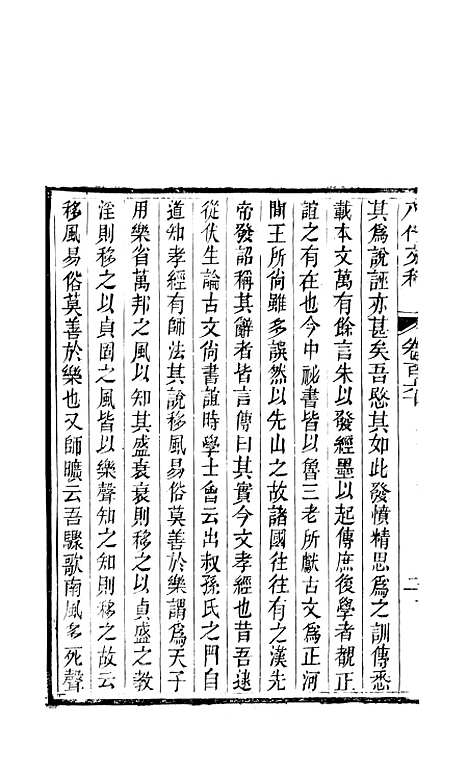 八代文粹　卷百六　二
其爲說誣亦甚矣吾愍其如此發憤精思爲之訓傳悉
載本文萬有餘言朱以發經墨以起傳庶後學者覩正
誼之有在也今中祕書皆以魯三老所獻古文爲正河
間王所尙雖多誤然以先山之故諸國往往有之漢先
帝發詔稱其辭者皆言傳曰其實今文孝經也昔吾逮
從伏生論古文尙書誼時學士會云出叔孫氏之門自
道知孝經有師法其說移風易俗莫善於樂謂爲天子
用樂省萬邦之風以知其盛衰衰則移之以貞盛之教
淫則移之以貞固之風皆以樂聲知之知則移之故云
移風易俗莫善於樂也又師曠云吾驟歌南風多死聲